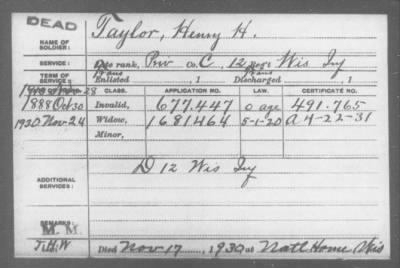 DEAD
NAME OF SOLDIER: Taylor, Henry H.
SERVICE: Late rank, Priv Co. C, 12 Reg't Wis Inf
TERM OF SERVICE: Enlisted , 1 Discharged , 1
CLASS. APPLICATION NO. LAW. CERTIFICATE NO.
1888 Oct 30 Invalid, 677.447 O age 491.765
1930 Nov 24 Widow, 1681464 5-1-20 A 4-22-31
Minor,
ADDITIONAL SERVICES: D 12 Wis Inf
REMARKS: M. M
J.H.W Died Nov 17, 1930 at Natl Home Wis